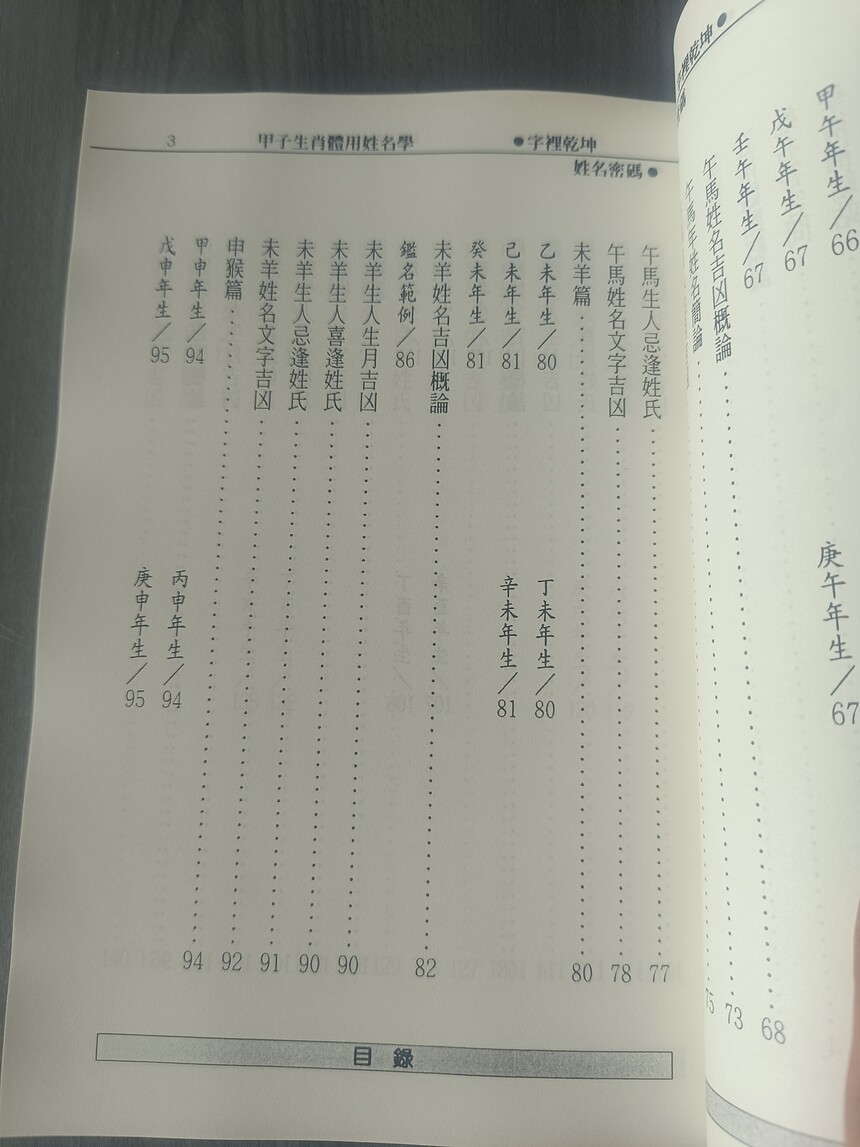 裡乾坤●
甲午年生/66
庚午年生/67
戊午年生/67
壬午年生/67
午馬姓名吉凶概論……68
午馬年姓名簡論……73
75
●字裡乾坤
姓名密碼●
甲子生肖體用姓名學
3
午馬生人忌逢姓氏……77
午馬姓名文字吉凶……78
未羊篇……80
乙未年生/80
丁未年生/80
己未年生/81
辛未年生/81
癸未年生/81
未羊姓名吉凶概論……82
鑑名範例/86
未羊生人生月吉凶……90
未羊生人喜逢姓氏……90
未羊生人忌逢姓氏……91
未羊姓名文字吉凶……92
申猴篇……94
甲申年生/94
丙申年生/94
戊申年生/95
庚申年生/95
目錄